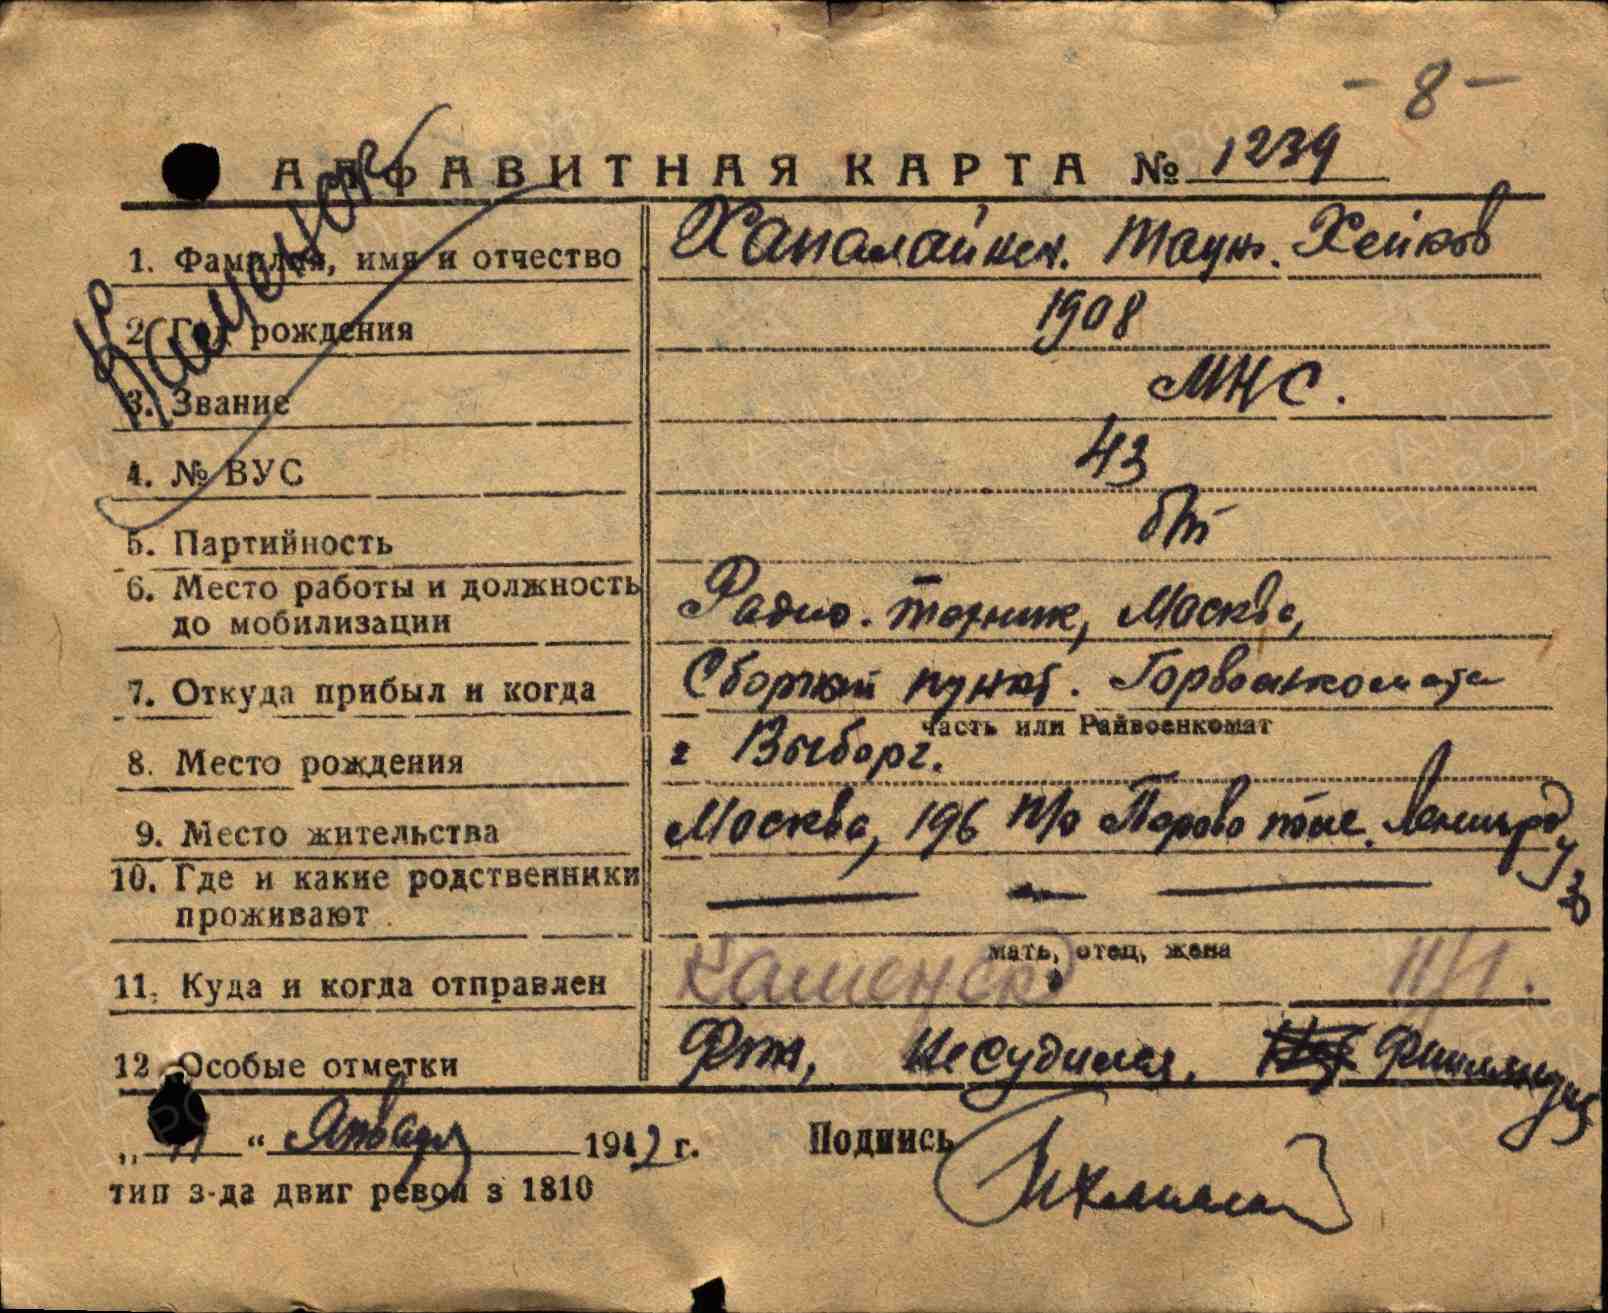 - 8 -
АЛФАВИТНАЯ КАРТА № 1239
1. Фамилия, имя и отчество Хапалайнен. Тауно. Хейков
2. Год рождения 1908
3. Звание МНС.
4. № ВУС 43
5. Партийность б/п
6. Место работы и должность Радио. техник, Москва,
до мобилизации
7. Откуда прибыл и когда Сборный пункт. Горвоенкомата
часть или Райвоенкомат
8. Место рождения г Выборг.
9. Место жительства Москва, 196 п/о Перово пос.
10. Где и какие родственники
проживают
мать, отец, жена
11. Куда и когда отправлен Каменск 11/1.
12 Особые отметки Фин, несудился, Финляндия
„ 11 “ Января 1942 г. Подпись
тип з-да двиг револ з 1810